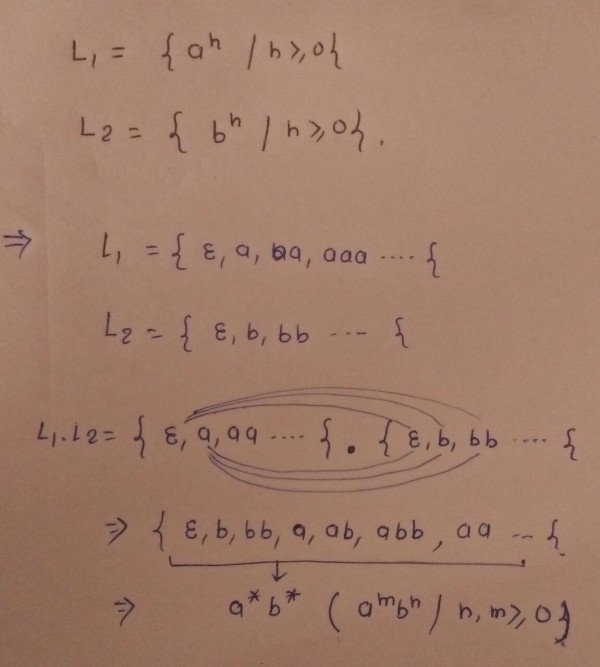 L₁ = { aⁿ / n ≥, 0 {
L₂ = { bⁿ / n ≥, 0 } .
⇒ L₁ = { ε, a, aa, aaa ···· {
L₂ = { ε, b, bb --- {
L₁.L₂ = { ε, a, aa ---- { . { ε, b, bb ···· {
⇒ { ε, b, bb, a, ab, abb, aa --- {
⇒ a*b* ( aᵐbⁿ / n, m ≥, 0 }